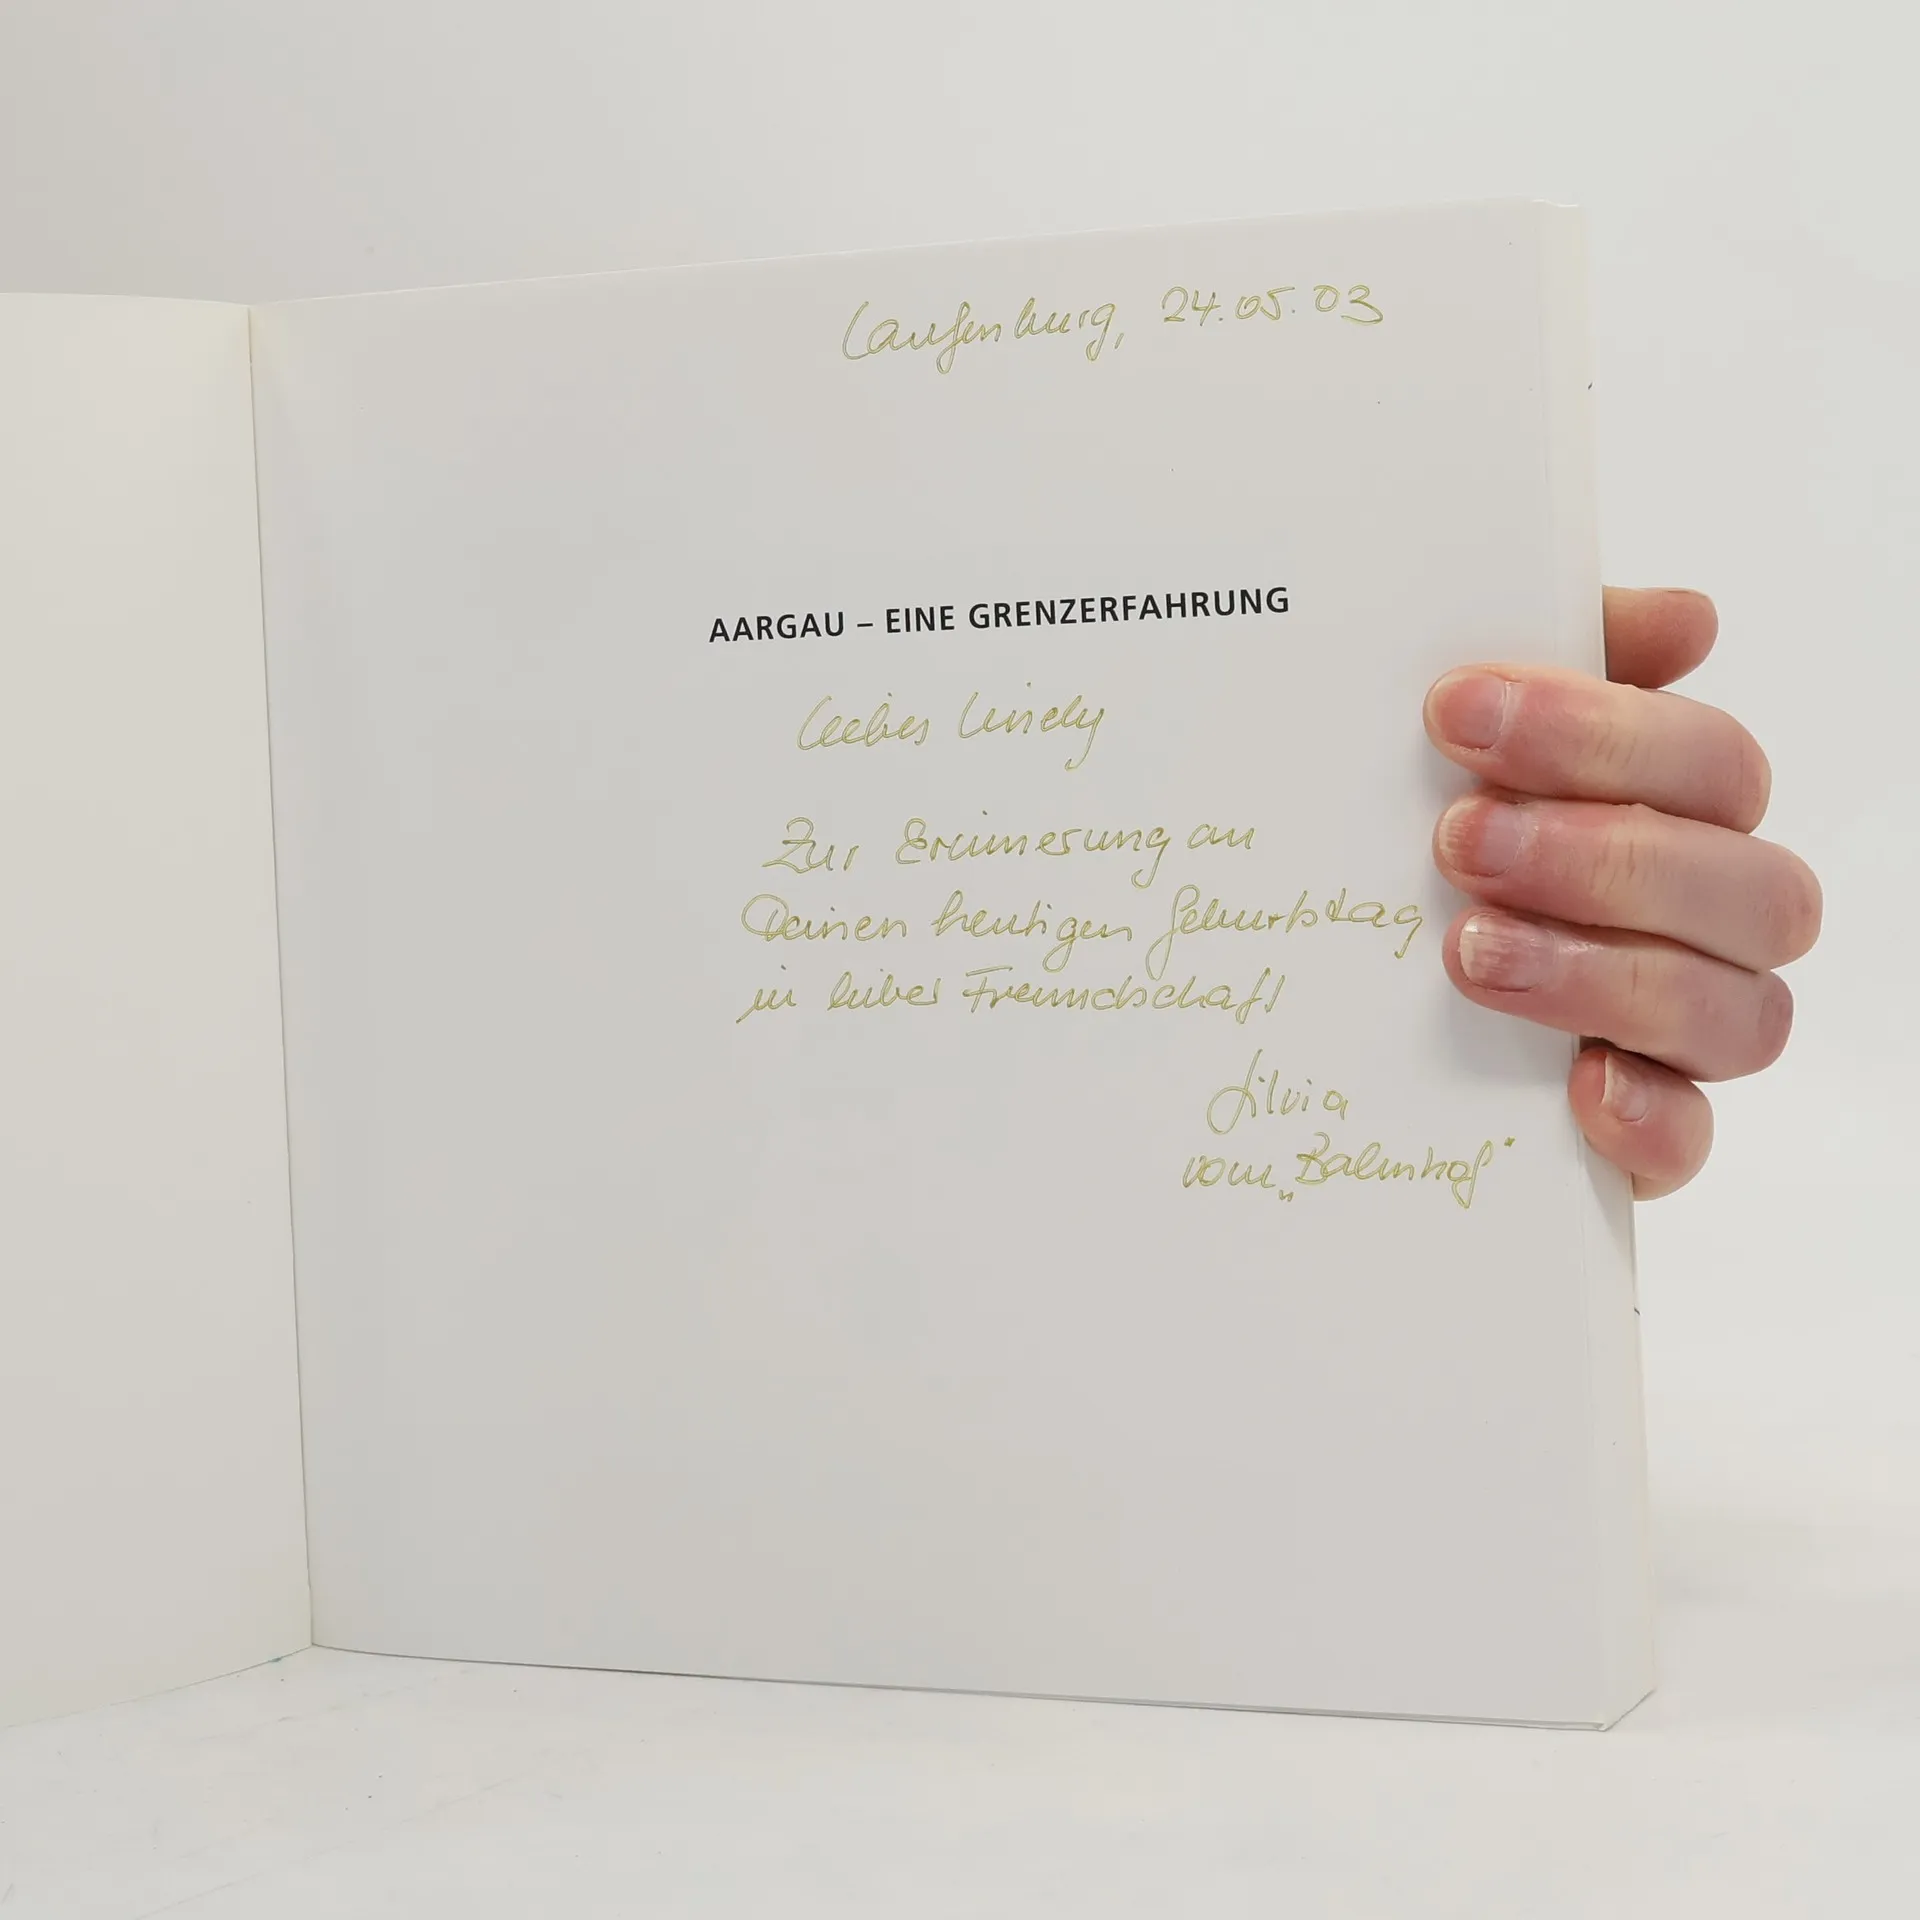 Laufenburg, 24.05.03
AARGAU – EINE GRENZERFAHRUNG
Lieber Lindy
Zur Erinnerung an
Deinen heutigen Geburtstag
in lieber Freundschaft
Silvia
vom „Bahnhof“